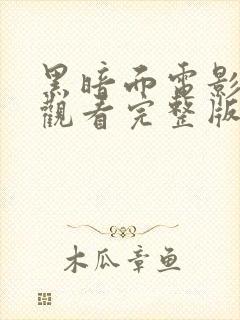 黑暗而電影
觀看完整版
木瓜章鱼